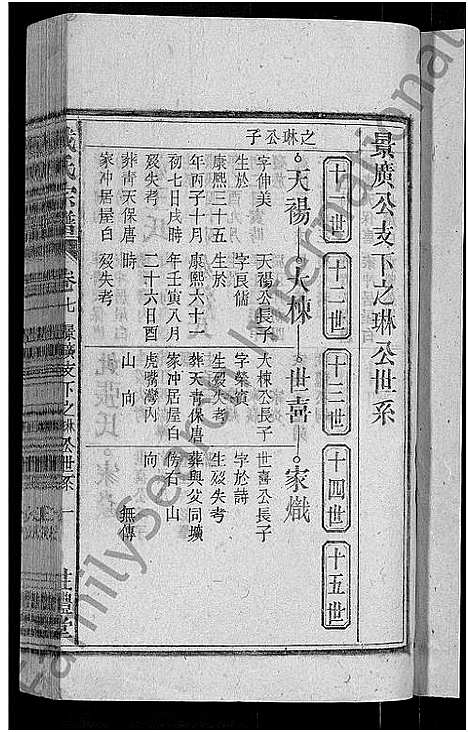 景廣公支下之琳公世系
十一世 十二世 十三世 十四世 十五世
之琳公子
天禓 大棟 世喜 家熾
字伸美 天禓公長子 大棟公長子 世喜公長子
生於 字良俻 字榮 字於詩
康熙三十五 生歿失考 生歿失考
年丙子十月 康熙六十一 葬天青保唐 葬與父同壙
初七日戌時 年壬寅八月 家冲居屋白 傍右 山
歿失考 二十六日酉 虎嘴灣內 向
葬青天保唐 時 山 向 無傳
家冲居屋白 歿失考
氏宗譜 卷七 景廣支下之琳公世系 一 堂
FamilySearch International